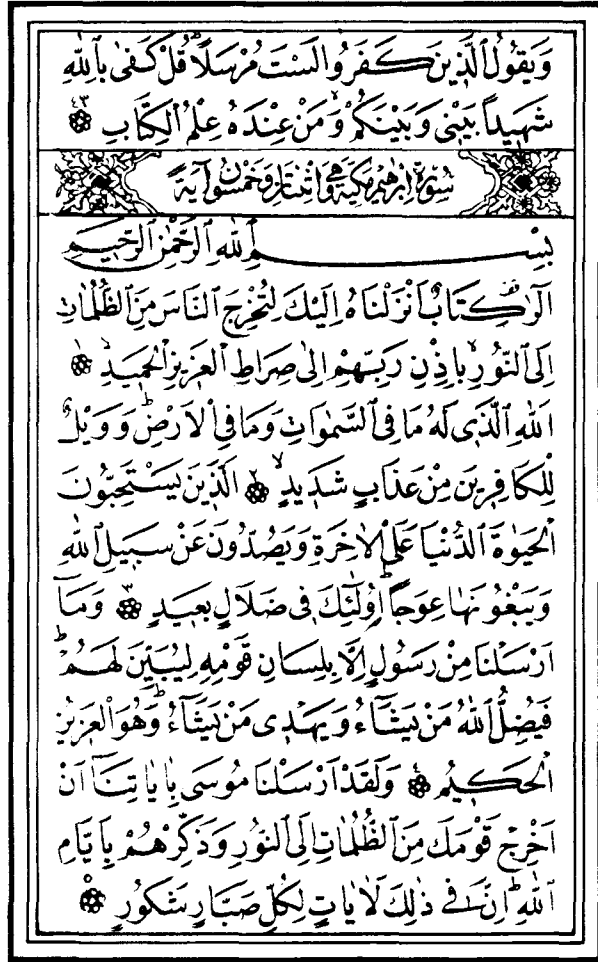 وَيَقُولُ الَّذِينَ كَفَرُوا لَسْتَ مُرْسَلًا قُلْ كَفٰى بِاللّٰهِ
شَهِيدًا بَيْنِى وَبَيْنَكُمْ وَمَنْ عِنْدَهُ عِلْمُ الْكِتَابِ ٤٣
سُورَةُ اِبْرٰهِيمَ مَكِّيَّةٌ وَهِىَ اثْنَتَانِ وَخَمْسُونَ آيَةً
بِسْمِ اللّٰهِ الرَّحْمٰنِ الرَّحِيمِ
الٓرٰ كِتَابٌ اَنْزَلْنَاهُ اِلَيْكَ لِتُخْرِجَ النَّاسَ مِنَ الظُّلُمَاتِ
اِلَى النُّورِ بِاِذْنِ رَبِّهِمْ اِلٰى صِرَاطِ الْعَزِيزِ الْحَمِيدِ ١
اَللّٰهِ الَّذِى لَهُ مَا فِى السَّمٰوَاتِ وَمَا فِى الْاَرْضِ وَوَيْلٌ
لِلْكَافِرِينَ مِنْ عَذَابٍ شَدِيدٍ ٢ اَلَّذِينَ يَسْتَحِبُّونَ
الْحَيٰوةَ الدُّنْيَا عَلَى الْاٰخِرَةِ وَيَصُدُّونَ عَنْ سَبِيلِ اللّٰهِ
وَيَبْغُونَهَا عِوَجًا اُولٰٓئِكَ فِى ضَلَالٍ بَعِيدٍ ٣ وَمَآ
اَرْسَلْنَا مِنْ رَسُولٍ اِلَّا بِلِسَانِ قَوْمِهِ لِيُبَيِّنَ لَهُمْ
فَيُضِلُّ اللّٰهُ مَنْ يَشَآءُ وَيَهْدِى مَنْ يَشَآءُ وَهُوَ الْعَزِيزُ
الْحَكِيمُ ٤ وَلَقَدْ اَرْسَلْنَا مُوسٰى بِاٰيَاتِنَآ اَنْ
اَخْرِجْ قَوْمَكَ مِنَ الظُّلُمَاتِ اِلَى النُّورِ وَذَكِّرْهُمْ بِاَيَّامِ
اللّٰهِ اِنَّ فِى ذٰلِكَ لَاٰيَاتٍ لِكُلِّ صَبَّارٍ شَكُورٍ ٥